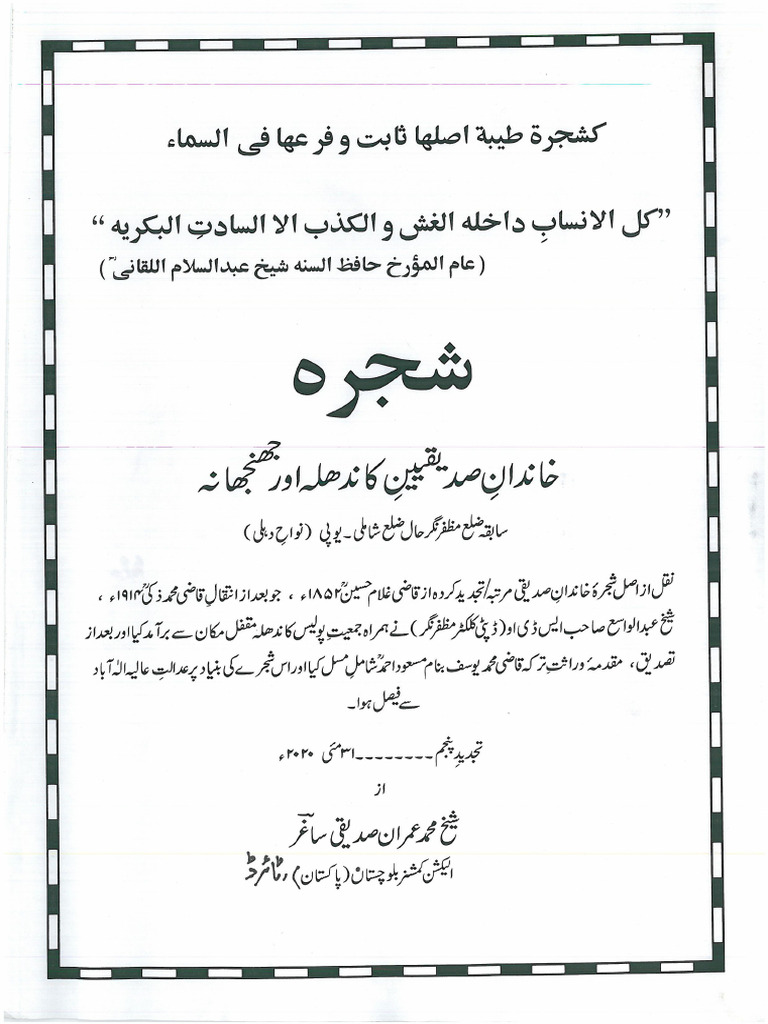 کشجرة طیبة اصلها ثابت و فرعها فی السماء
”کل الانسابِ داخله الغش و الکذب الا السادتِ البکریه“
(عام المؤرخ حافظ السنه شیخ عبدالسلام اللقانیؒ)
شجرہ
خاندانِ صدیقیینِ کاندھلہ اور جھنجھانہ
سابقہ ضلع مظفرنگر حال ضلع شاملی۔ یوپی (نواحِ دہلی)
نقل از اصل شجرۂ خاندانِ صدیقی مرتبہ/تجدید کردہ از قاضی غلام حسینؒ ۱۸۵۲ء ، جو بعد از انتقالِ قاضی محمد ذکیؒ ۱۹۱۴ء ،
شیخ عبدالواسع صاحب ایس ڈی او (ڈپٹی کلکٹر مظفرنگر) نے ہمراہ جمعیتِ پولیس کاندھلہ مقفل مکان سے برآمد کیا اور بعد از
تصدیق ، مقدمۂ وراثتِ ترکہ قاضی محمد یوسف بنام مسعود احمدؒ شاملِ مسل کیا اور اس شجرے کی بنیاد پر عدالتِ عالیہ الٰہ آباد
سے فیصل ہوا۔
تجدیدِ پنجم ۔۔۔۔۔۔۔۔۔ ۳۱ مئی ۲۰۲۰ء
از
شیخ محمد عمران صدیقی ساغرؔ
الیکشن کمشنر بلوچستان (پاکستان) رٹائرڈ